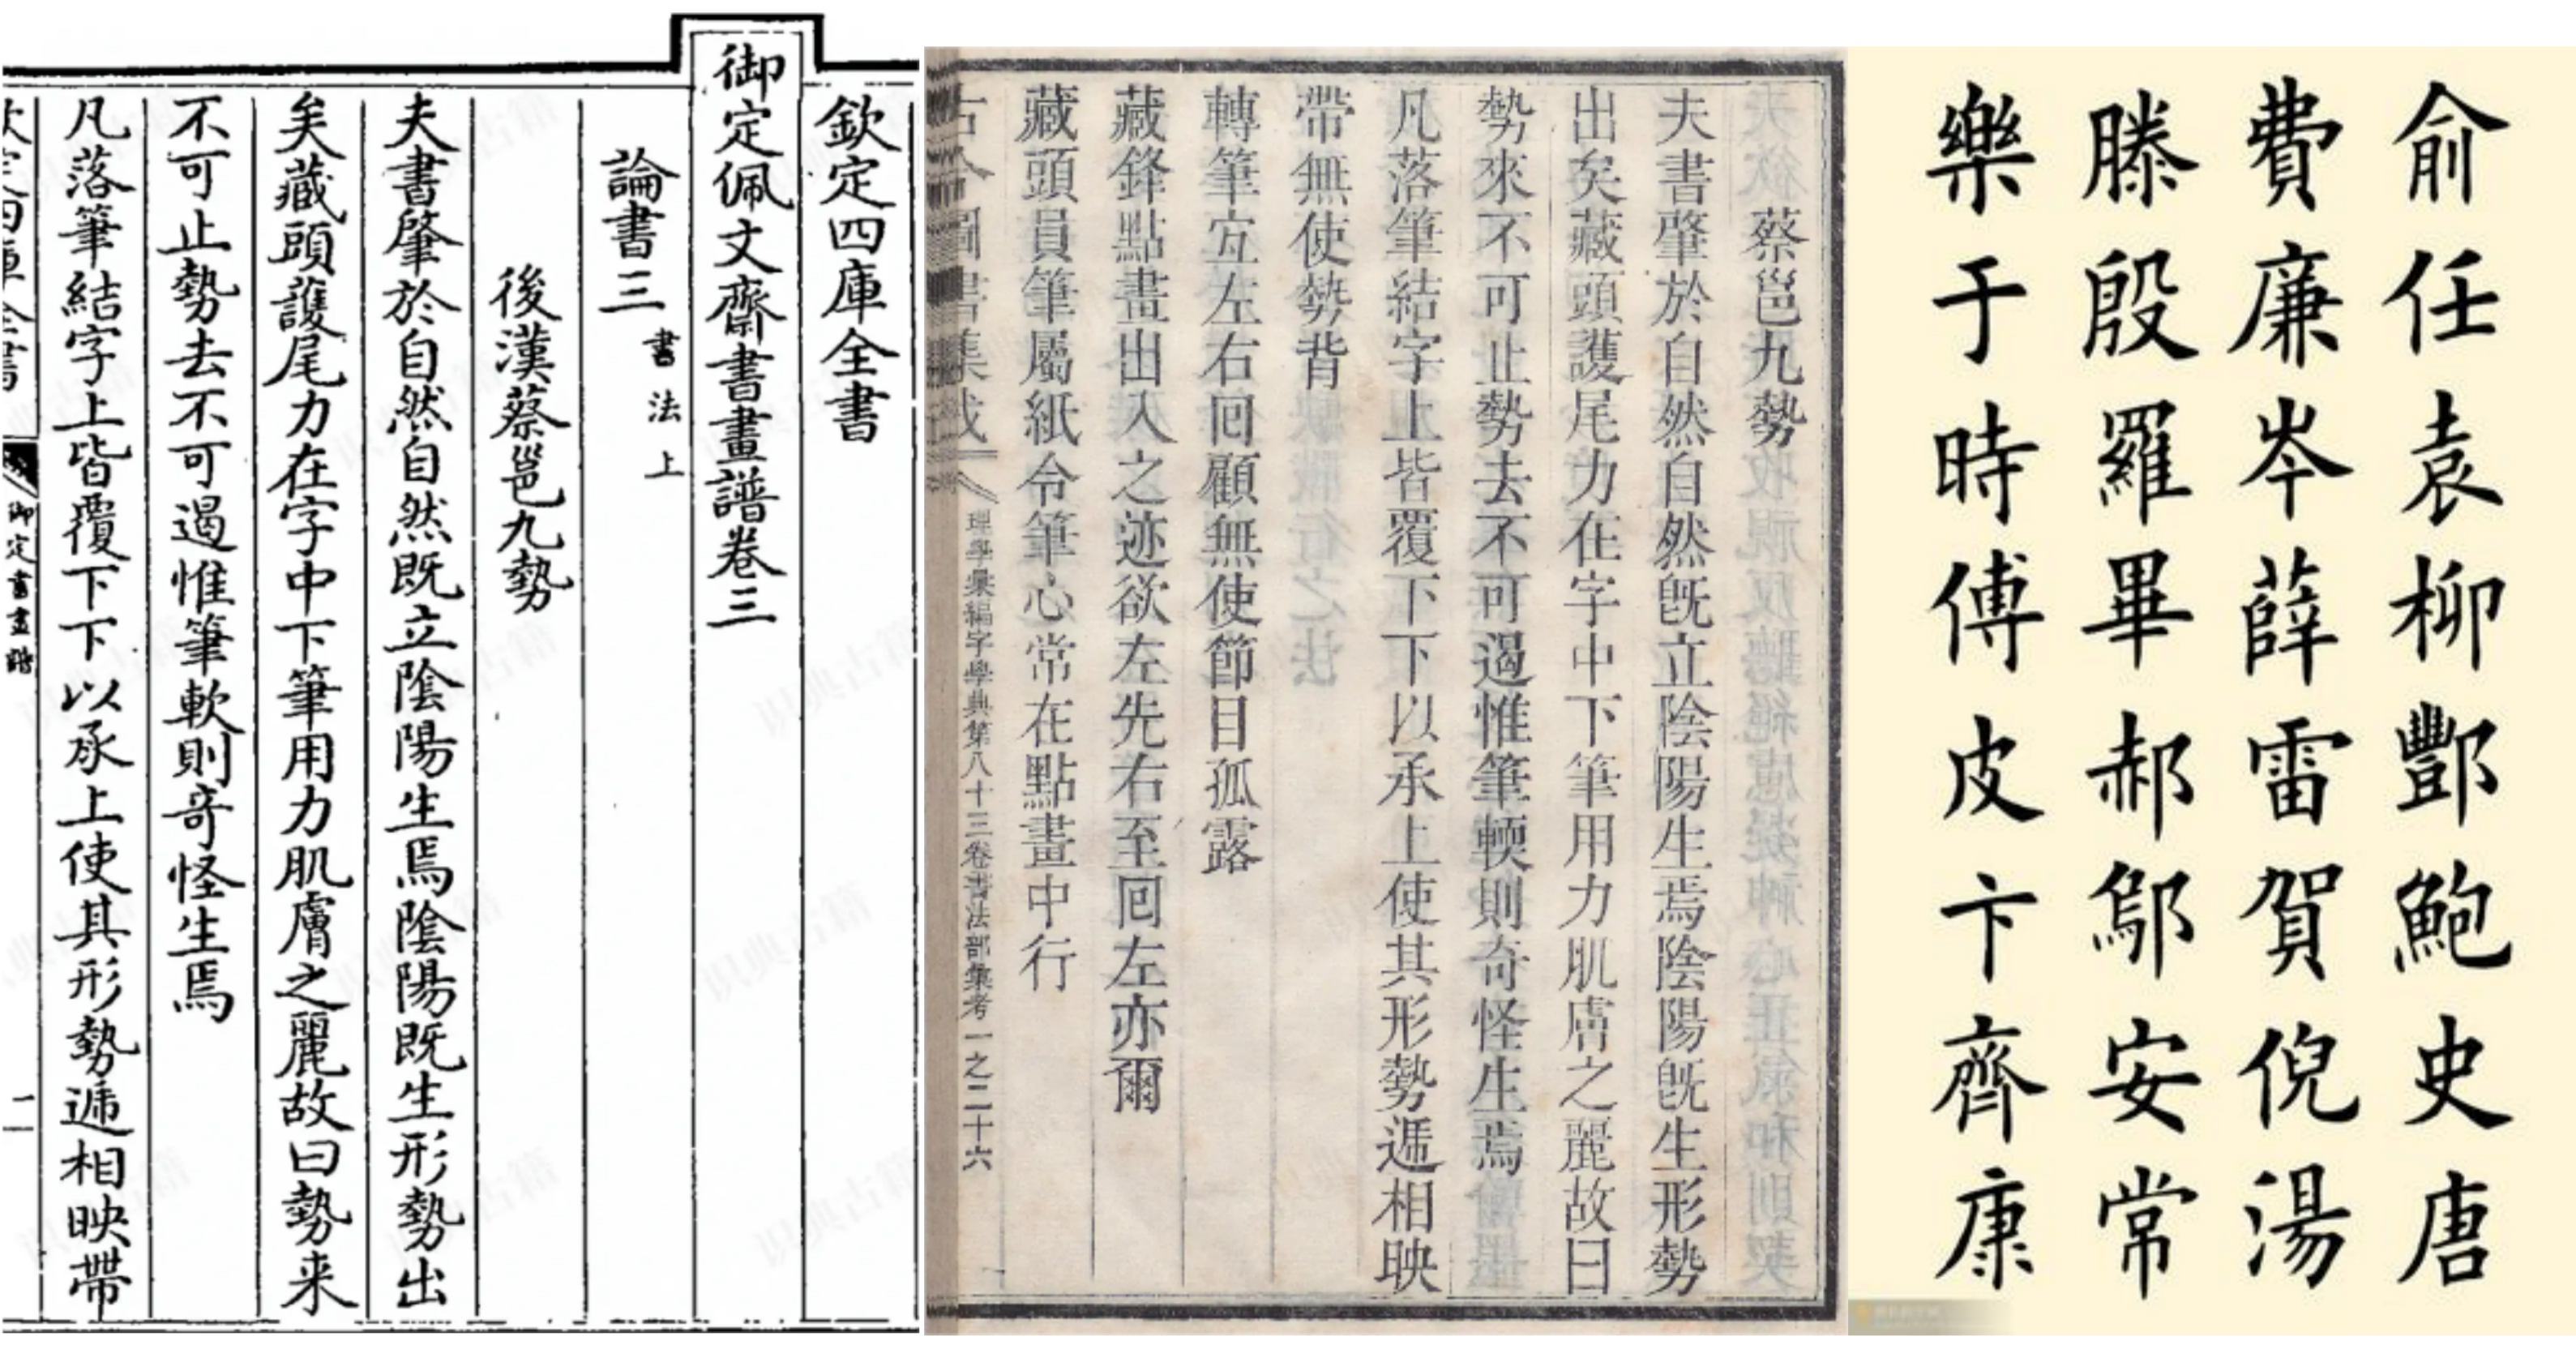 欽定四庫全書
御定佩文齋書畫譜卷三
論書三 書法上
後漢蔡邕九勢
夫書肇於自然自然既立陰陽生焉陰陽既生形勢出
矣藏頭護尾力在字中下筆用力肌膚之麗故曰勢来
不可止勢去不可遏惟筆軟則奇怪生焉
凡落筆結字上皆覆下下以承上使其形勢遞相映帶
御定書畫譜
蔡邕九勢
夫書肇於自然自然旣立陰陽生焉陰陽旣生形勢
出矣藏頭護尾力在字中下筆用力肌膚之麗故曰
勢來不可止勢去不可遏惟筆輭則奇怪生焉
凡落筆結字上皆覆下下以承上使其形勢遞相映
帶無使勢背
轉筆宐左右回顧無使節目孤露
藏鋒點畫出入之迹欲左先右至回左亦爾
藏頭員筆屬紙令筆心常在點畫中行
古今圖書集成 理學彙編字學典第八十三卷書法部彙考一之二十六
俞任袁柳酆鮑史唐
費廉岑薛雷賀倪湯
滕殷羅畢郝鄔安常
樂于時傅皮卞齊康